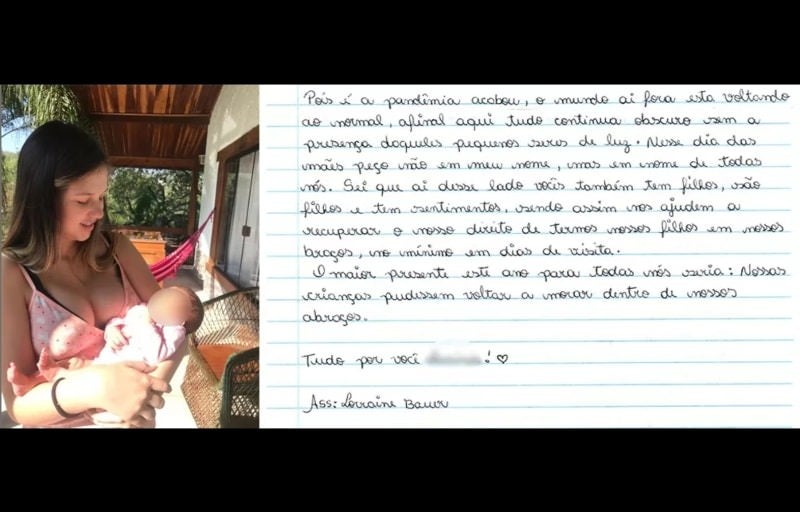 Pois é a pandêmia acabou, o mundo ai fora esta voltando
ao normal, afinal aqui tudo continua obscuro sem a
presença daqueles pequenos seres de luz. Nesse dia das
mães peço não em meu nome, mas em nome de todas
nós. Sei que ai desse lado vocês também tem filhos, são
filhos e tem sentimentos, sendo assim nos ajudem a
recuperar o nosso direito de termos nossos filhos em nossos
braços, no mínimo em dias de visita.
O maior presente este ano para todas nós seria: Nossas
crianças pudessem voltar a morar dentro de nossos
abraços.
Tudo por você ! ♡
Ass: Lorraine Bauer